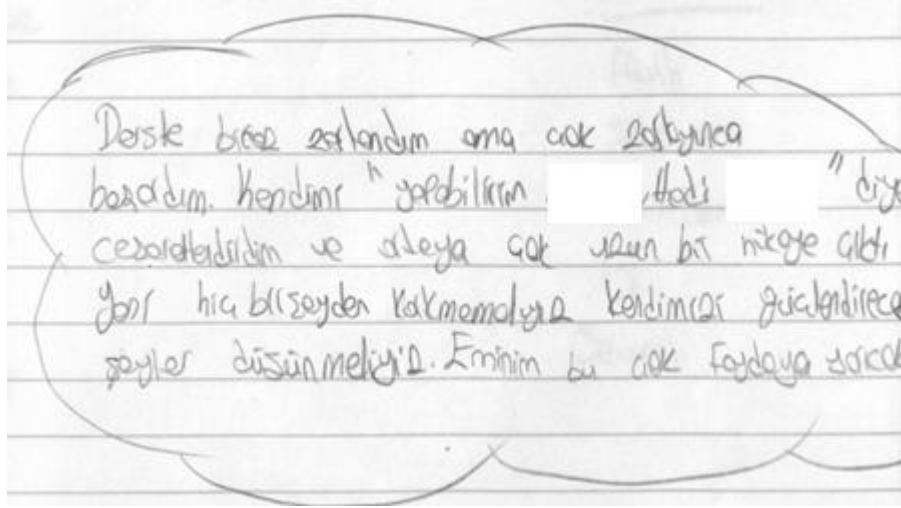 Derste biraz zorlandım ama çok zorlayınca
başardım. Kendimi "yapabilirim , Hadi " diye
cesaretlendirdim ve ortaya çok uzun bir hikaye çıktı
Yani hiç birşeyden korkmamalıyız kendimizi güçlendirecek
şeyler düşünmeliyiz. Eminim bu çok faydaya yarıcak